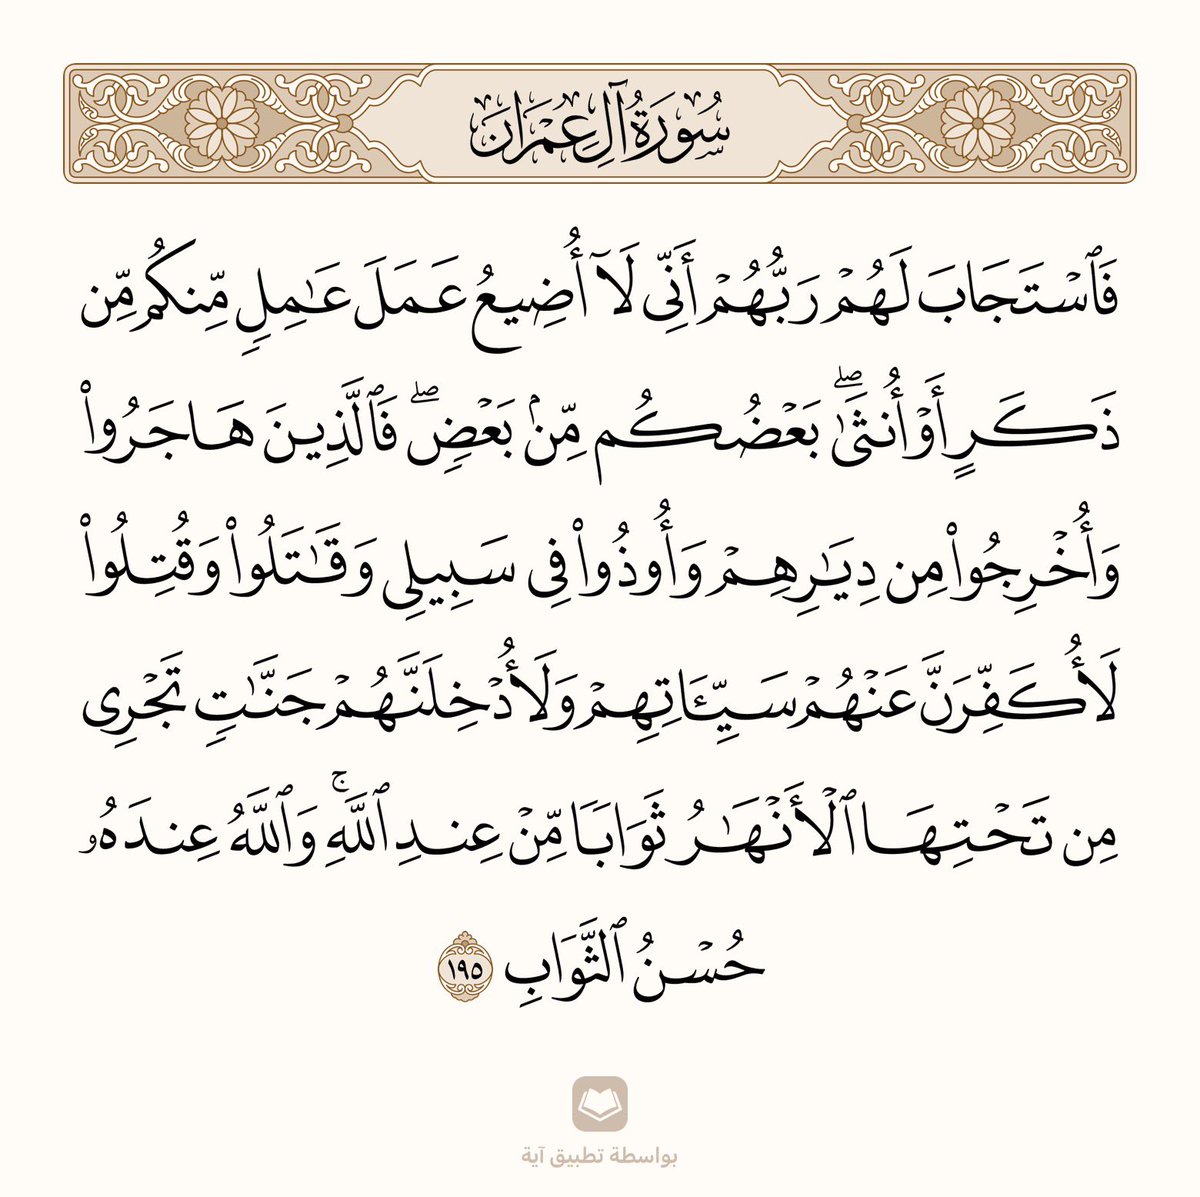 سُورَةُ آلِ عِمْرَان
فَٱسْتَجَابَ لَهُمْ رَبُّهُمْ أَنِّى لَآ أُضِيعُ عَمَلَ عَٰمِلٍ مِّنكُم مِّن
ذَكَرٍ أَوْ أُنثَىٰ ۖ بَعْضُكُم مِّنۢ بَعْضٍ ۖ فَٱلَّذِينَ هَاجَرُوا۟
وَأُخْرِجُوا۟ مِن دِيَٰرِهِمْ وَأُوذُوا۟ فِى سَبِيلِى وَقَٰتَلُوا۟ وَقُتِلُوا۟
لَأُكَفِّرَنَّ عَنْهُمْ سَيِّـَٔاتِهِمْ وَلَأُدْخِلَنَّهُمْ جَنَّٰتٍ تَجْرِى
مِن تَحْتِهَا ٱلْأَنْهَٰرُ ثَوَابًا مِّنْ عِندِ ٱللَّهِ ۚ وَٱللَّهُ عِندَهُۥ
حُسْنُ ٱلثَّوَابِ ١٩٥
بواسطة تطبيق آية